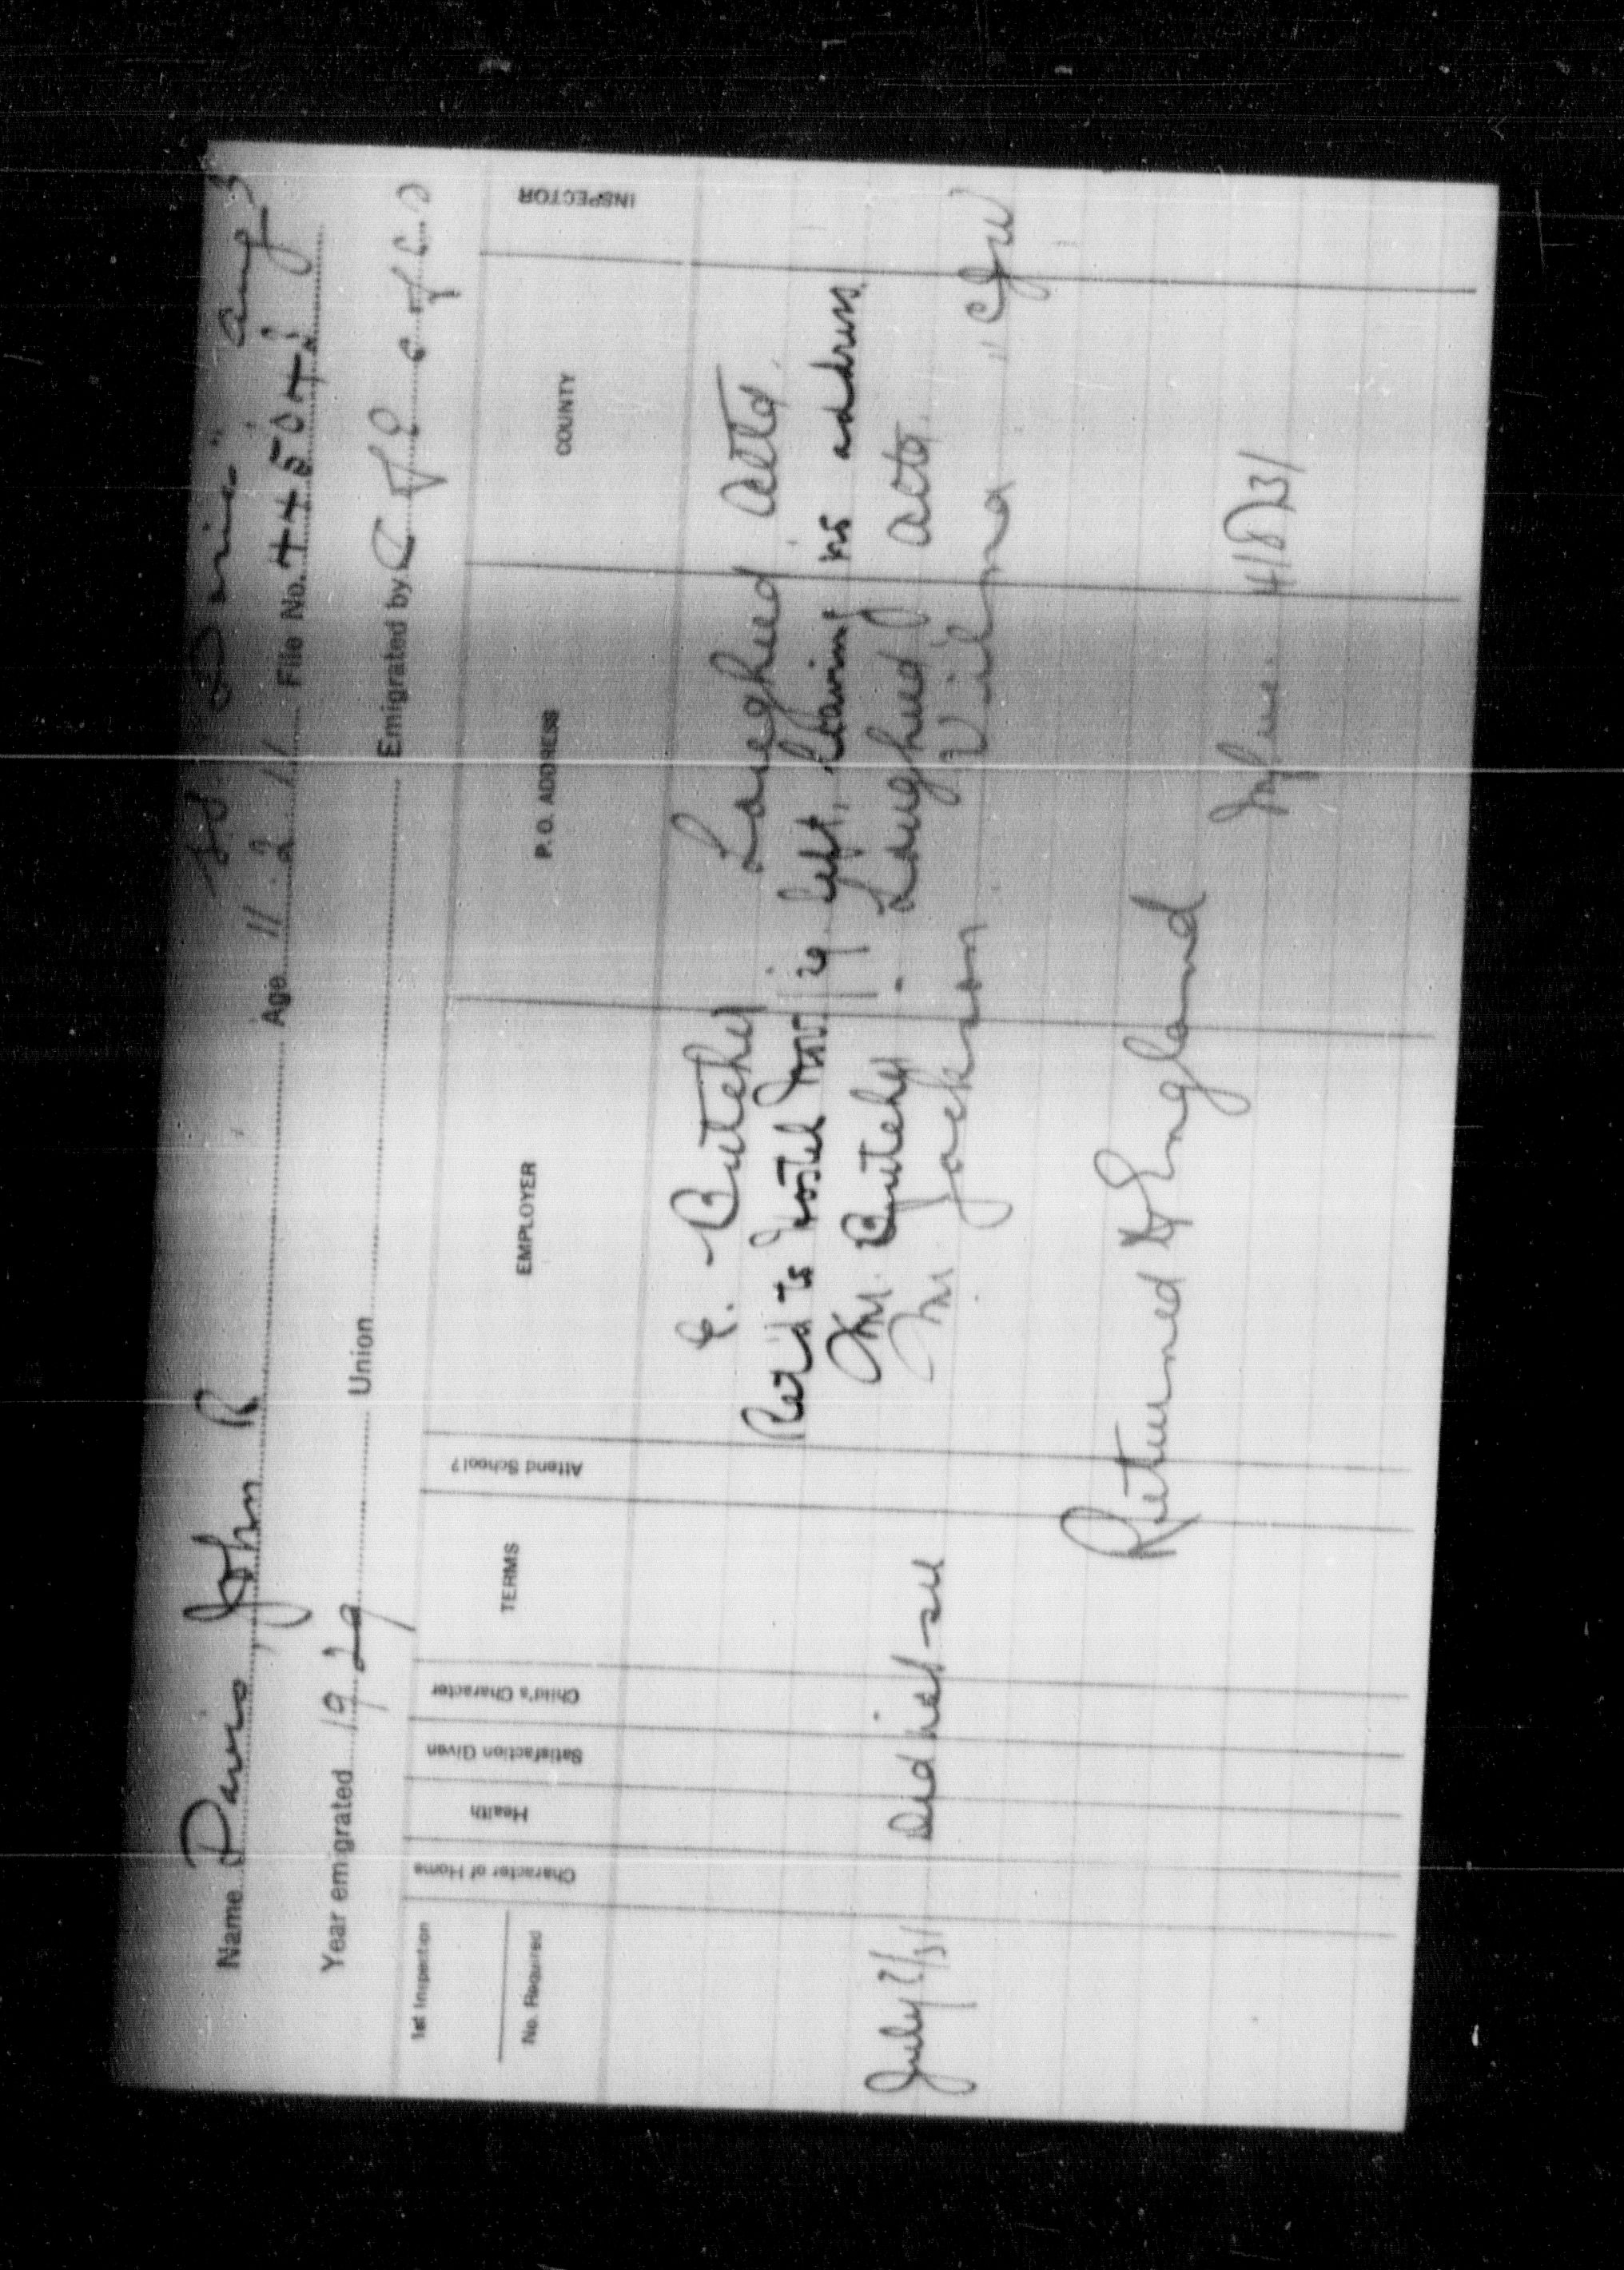 SS Doric Aug 3
Name Davis, John R Age 11.2.1. File No. 445041
Year emigrated 1929 Union Emigrated by C of E C of E.S
1st Inspection No. Required Character of Home Health Satisfaction Given Child's Character TERMS Attend School? EMPLOYER P. O. ADDRESS COUNTY INSPECTOR
E. Butcher Lougheed Alta.
Ret'd to Hostel Nov. left, leaving no address
Mr. Butcher - Lougheed Alta
July 2/31 Did not see Mr Jackson Vilna " CJW
Returned to England
4/8/31